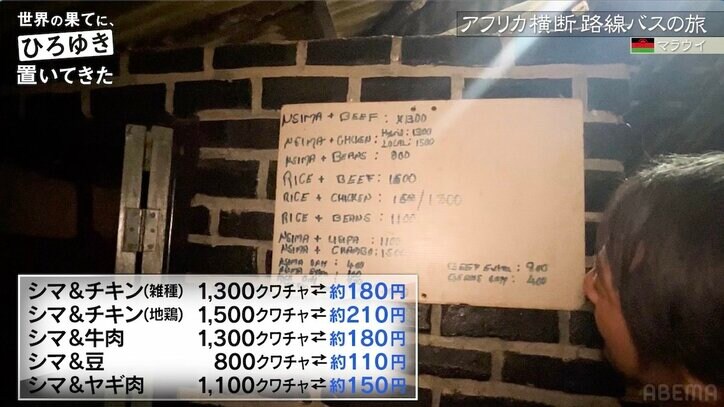 世界の果てに、
ひろゆき
置いてきた
アフリカ横断 路線バスの旅
マラウイ
NSIMA + BEEF : X1300
NSIMA + CHICKEN : HYBRID: 1300
LOCAL: 1500
NSIMA + BEANS : 800
RICE + BEEF :
RICE + CHICKEN : /1800
RICE + BEANS : 1100
NSIMA + : 1100
NSIMA + CHAMBO :
: 400
BEEF : 900
: 400
シマ&チキン(雑種) 1,300クワチャ⇄約180円
シマ&チキン(地鶏) 1,500クワチャ⇄約210円
シマ&牛肉 1,300クワチャ⇄約180円
シマ&豆 800クワチャ⇄約110円
シマ&ヤギ肉 1,100クワチャ⇄約150円
ABEMA